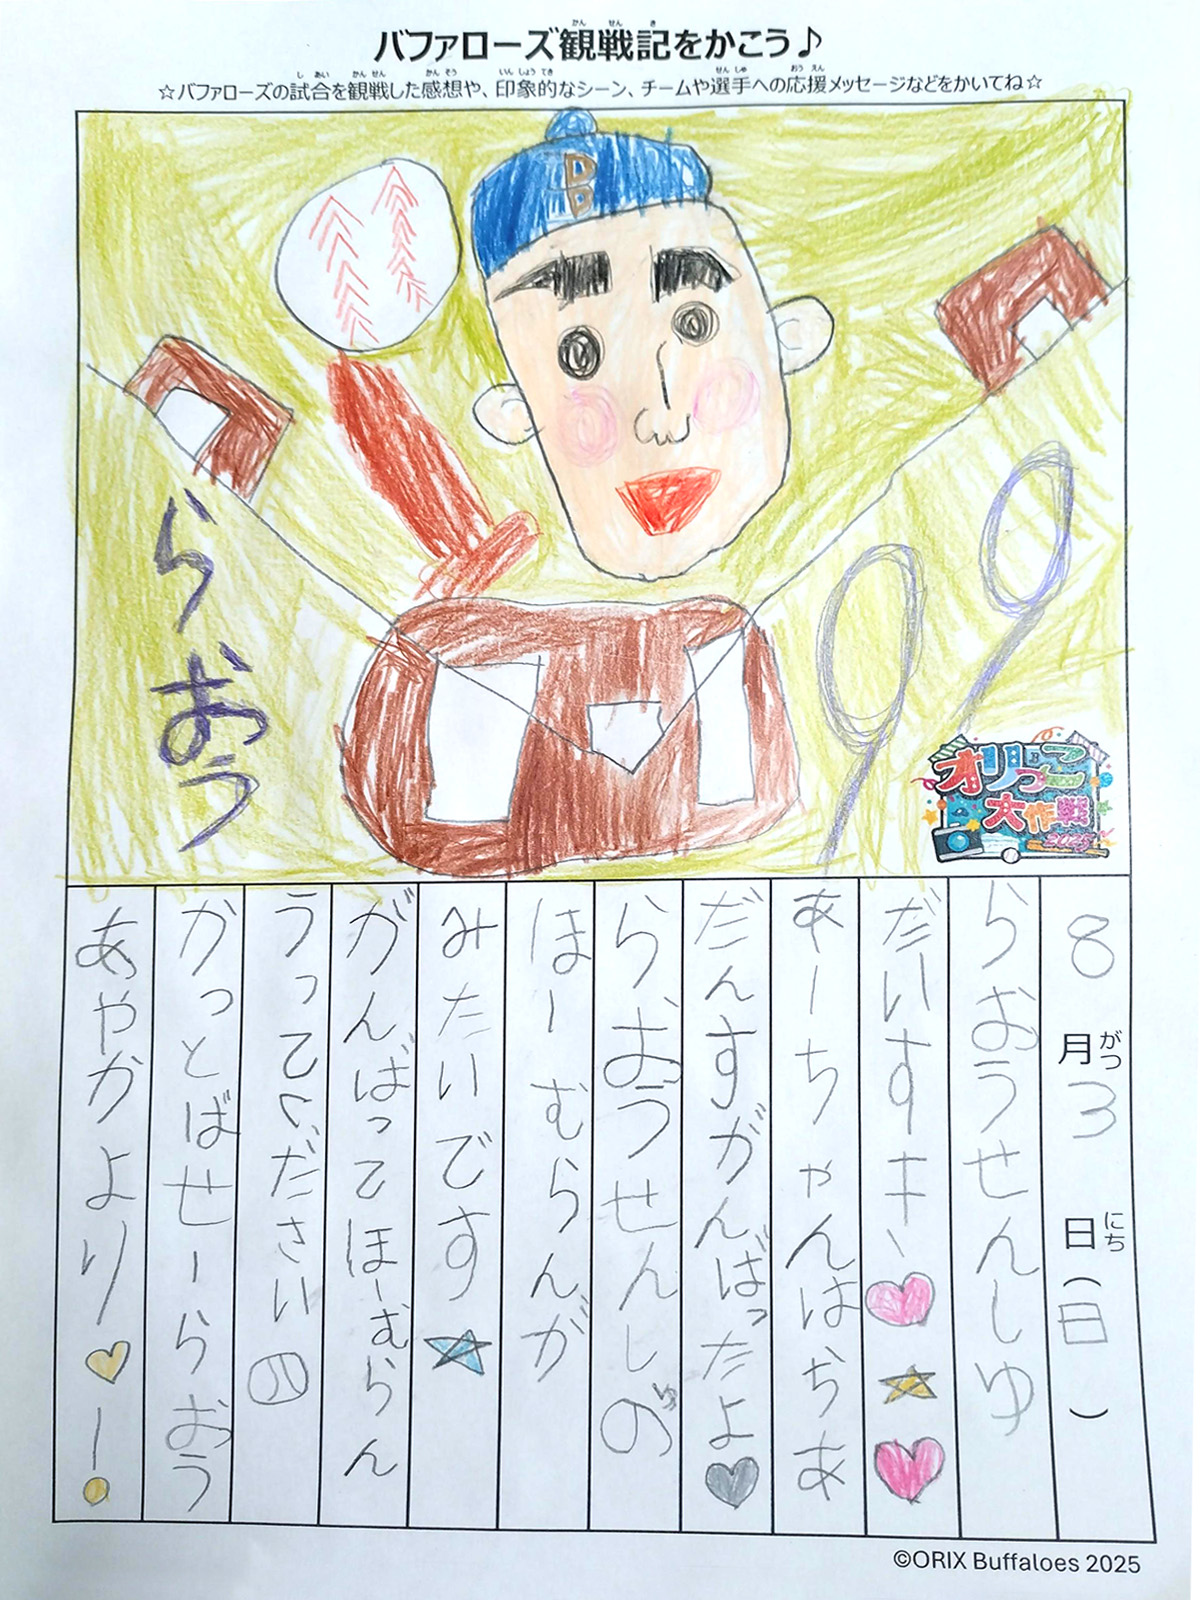 バファローズ観戦記をかこう♪
☆バファローズの試合を観戦した感想や、印象的なシーン、チームや選手への応援メッセージなどをかいてね☆
らおう
オリっこ
大作戦
2025
8月3日(日)
らおうせんしゆ
だいすキ、
あーちゃんはちあ
だんすがんばったよ
らおうせんしの
ほーむらんが
みたいです
がんばってほーむらん
うってください
かっとばせーらおう
あやかより!
©ORIX Buffaloes 2025